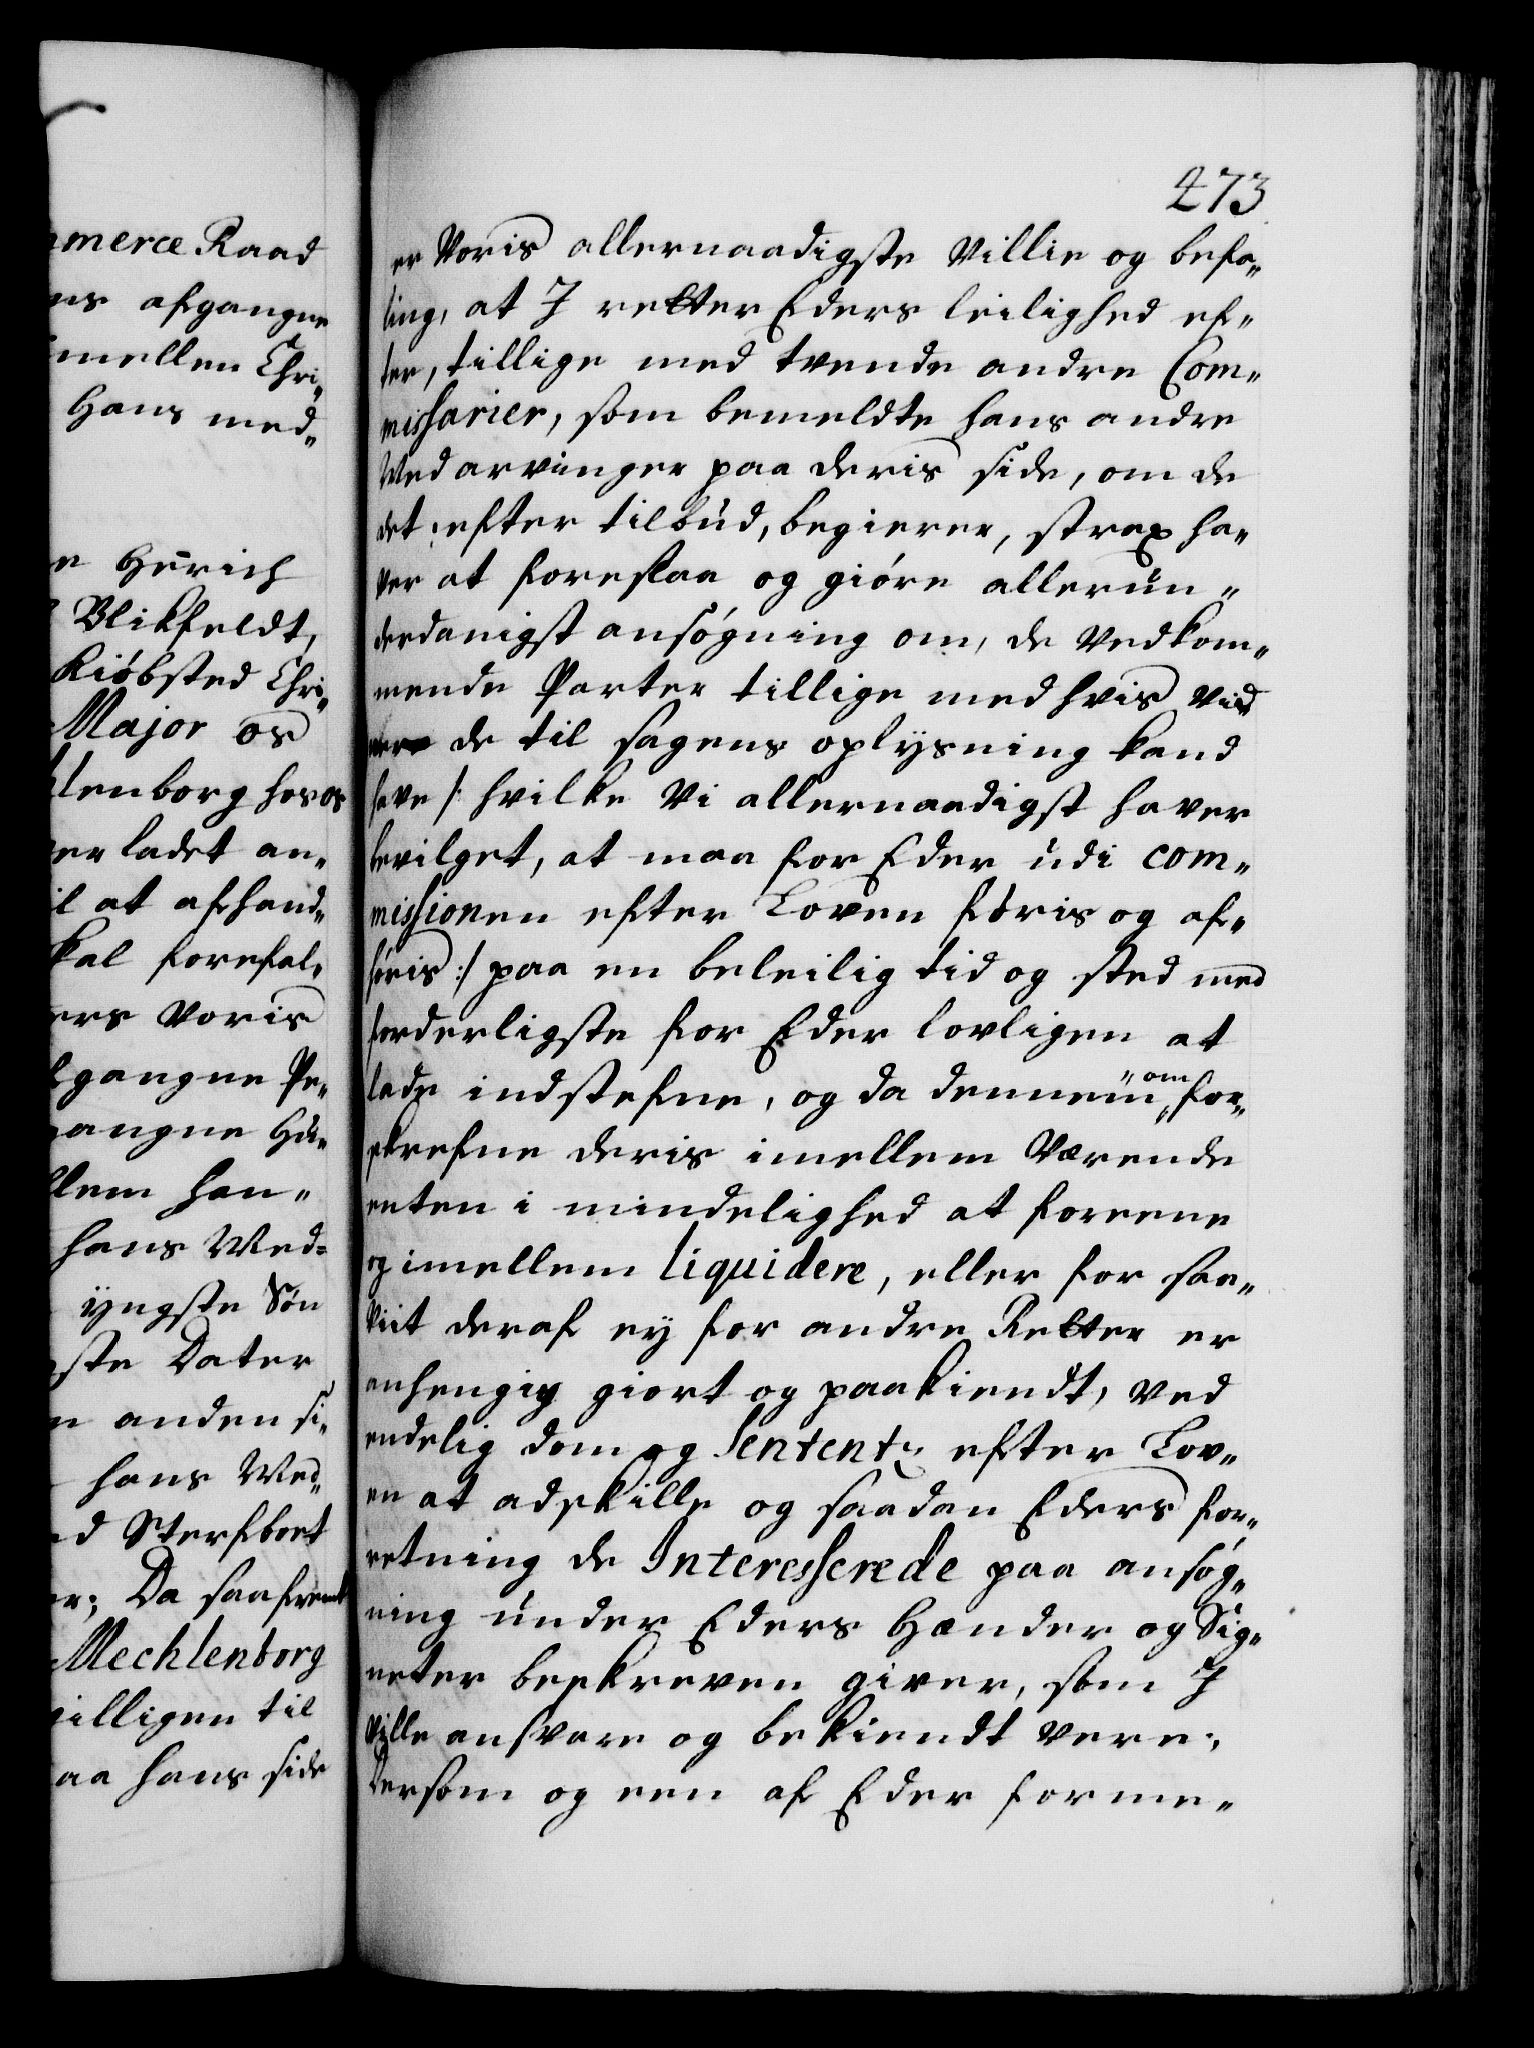 mmerce Raad
ns afgangne
imellem Chri„
Hans med„
e Henrich
Blikfeldt,
Kiöbsted Chri„
Major os
lenborg hos os
er ladet an„
il at afhand„
kal forefal„
ers Voris
fgangne Pe„
angne Hu„
llem han„
hans Med„
ÿngste Sön
ste Dater
n anden si„
hans Med„
d Sterfboet
er; Da saafremt
Mechlenborg
villigen til
aa hans side
473
er Voris allernaadigste Villie og befa„
ling, at I retter Eders leilighed ef„
ter, tillige med tvende andre Com„
missarier, som bemeldte hans andre
Medarvinger paa deris side, om de
det efter tilbud, begierer, strax ha„
ver at foreslaa og giöre allerun„
derdanigst ansögning om, de Vedkom„
mende Parter tillige med hvis Vid
ner de til sagens oplysning kand
have /: hvilke Vi allernaadigst haver
bevilget, at maa for Eder udi com„
missionen efter Loven föris og af„
höris :/ paa en beleilig tid og sted med
forderligste for Eder lovligen at
lade indstefne, og da dennem „om for„
skrefne deris imellem Værende
enten i mindelighed at foreene
og imellem liquidere, eller for saa„
viit deraf ey for andre Retter er
anhengig giort og paakiendt, ved
endelig dom og Sententz efter Lov„
en at adskille og saadan Eders for„
retning de Interesserede paa ansög„
ning under Eders Hænder og Sig„
neter beskreven giver, som I
ville ansvare og bekiendt vere;
Dersom og een af Eder forme„